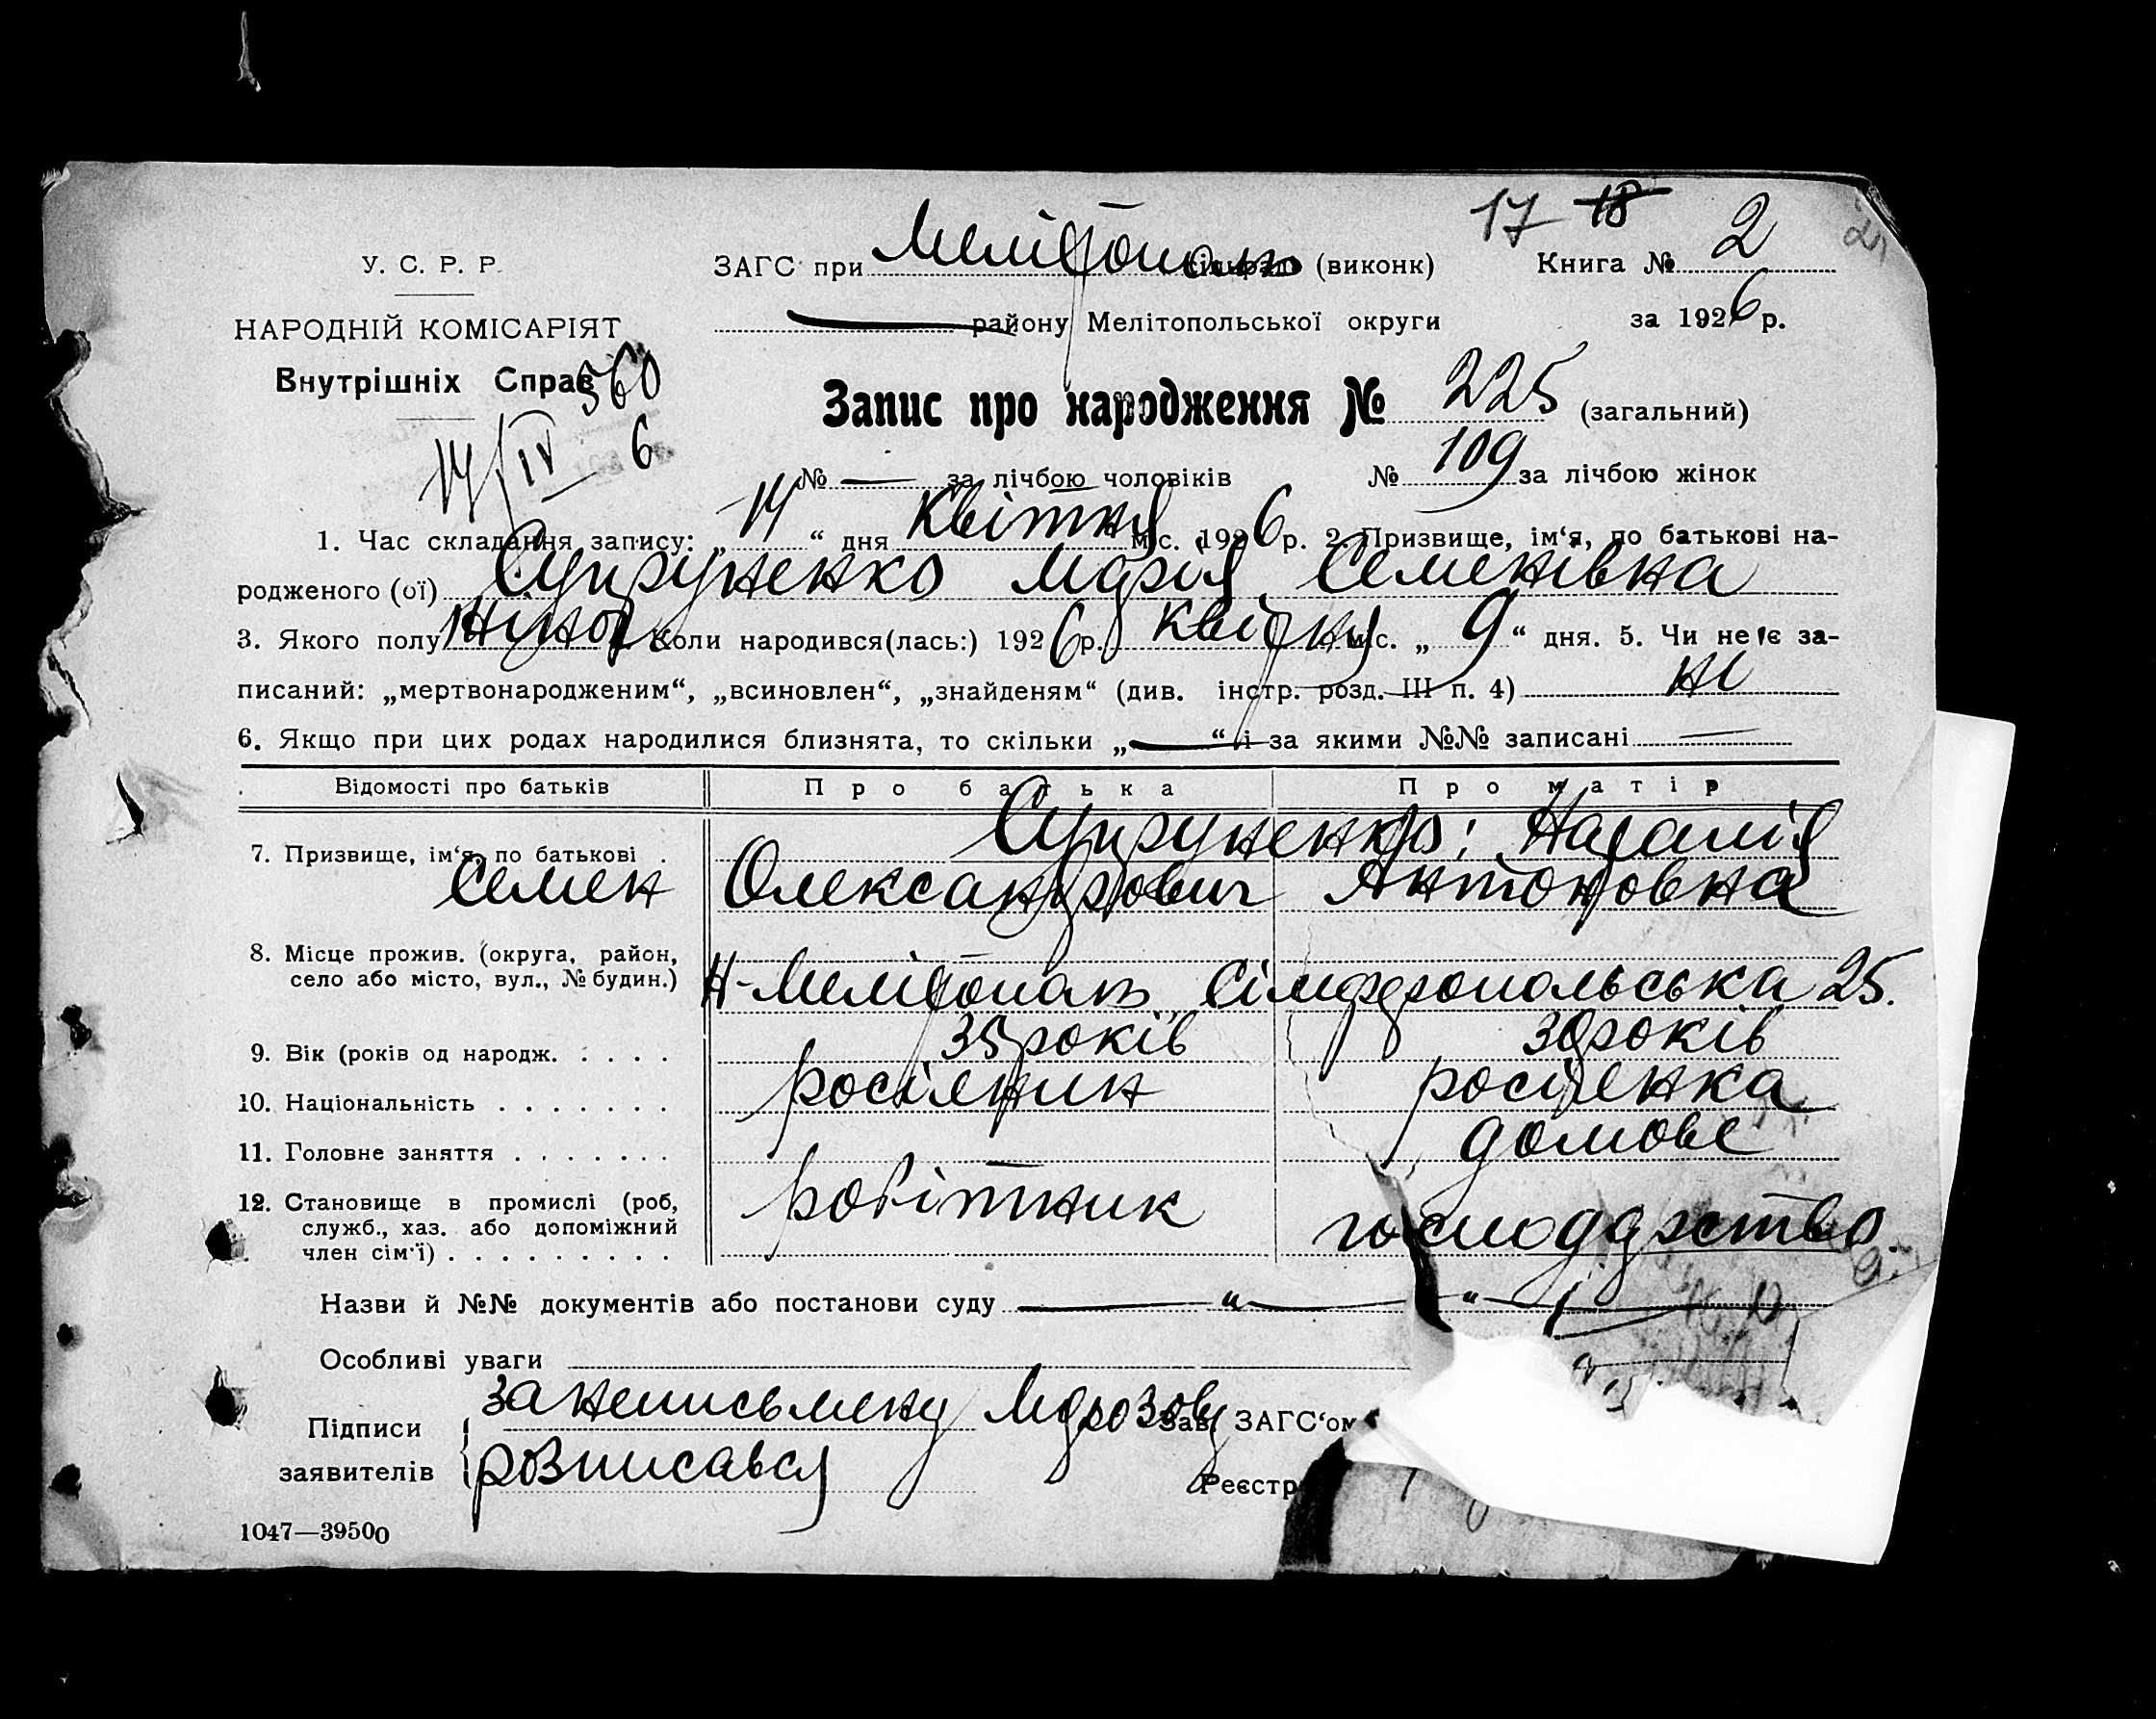 17 18
У. С. Р. Р. ЗАГС при Мелітополь (виконк) Книга № 2
НАРОДНІЙ КОМІСАРІЯТ району Мелітопольської округи за 1926 р.
Внутрішніх Справ 560
Запис про народження № 225 (загальний)
14/IV 6
№ — за лічбою чоловіків № 109 за лічбою жінок
1. Час складання запису: „14“ дня Квітня міс. 1926 р. 2. Призвище, ім‘я, по батькові на-
родженого (ої) Супруненко Марія Семенівна
3. Якого полу жіноч. Коли народився(лась:) 1926 р. Квітня міс. „9“ дня. 5. Чи не є за-
писаний: „мертвонародженим“, „всиновлен“, „знайденям“ (див. інстр. розд. III п. 4) ні
6. Якщо при цих родах народилися близнята, то скільки „—“ і за якими №№ записані —
Відомості про батьків Про батька Про матір
7. Призвище, ім‘я, по батькові . Супруненко: Наталія
Семен Олександрович Антоновна
8. Місце прожив. (округа, район,
село або місто, вул., № будин.) Н-Мелітополь, Сімферопольська 25.
9. Вік (років од народж. . . . . 35 років 30 років
10. Національність . . . . . . . росіянин росіянка
11. Головне заняття . . . . . . . домове
12. Становище в промислі (роб, робітник господарство
служб., хаз. або допоміжний
член сім‘ї) . . . . . . . . .
Назви й №№ документів або постанови суду — „ — „ —
Особливі уваги
Підписи за неписьмену Морозову Зав. ЗАГС‘ом
заявителів розписався Реєстр
1047—39500